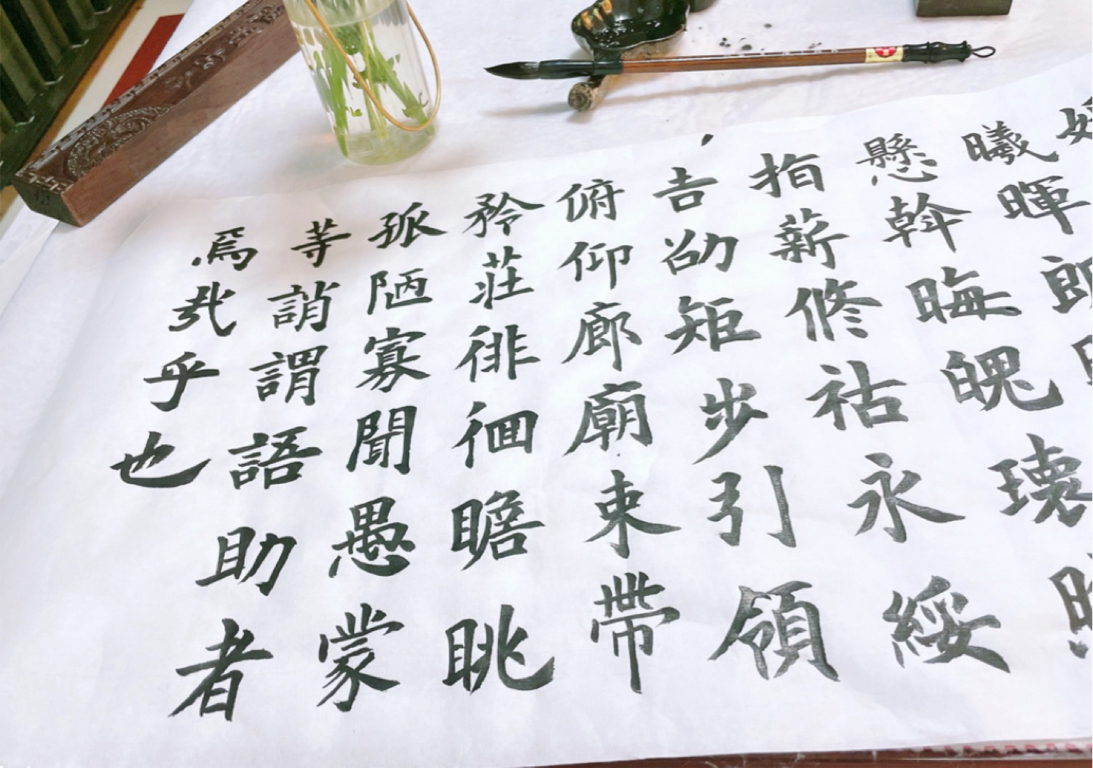 曦暉朗
懸斡晦魄環
指薪修祜永綏
吉劭矩步引領
俯仰廊廟束帶
矜莊徘徊瞻眺
孤陋寡聞愚蒙
等誚謂語助者
焉哉乎也